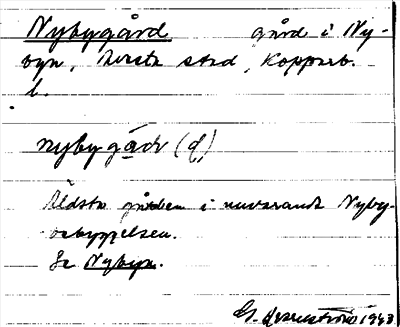 Nybygård gård i Ny-
byn, Avesta stad, Kopparb.
l.
nybygåɖɩ (ɖ)
Äldsta gården i nuvarande Nyby-
bebyggelsen.
Se Nybyn.
G. 1943